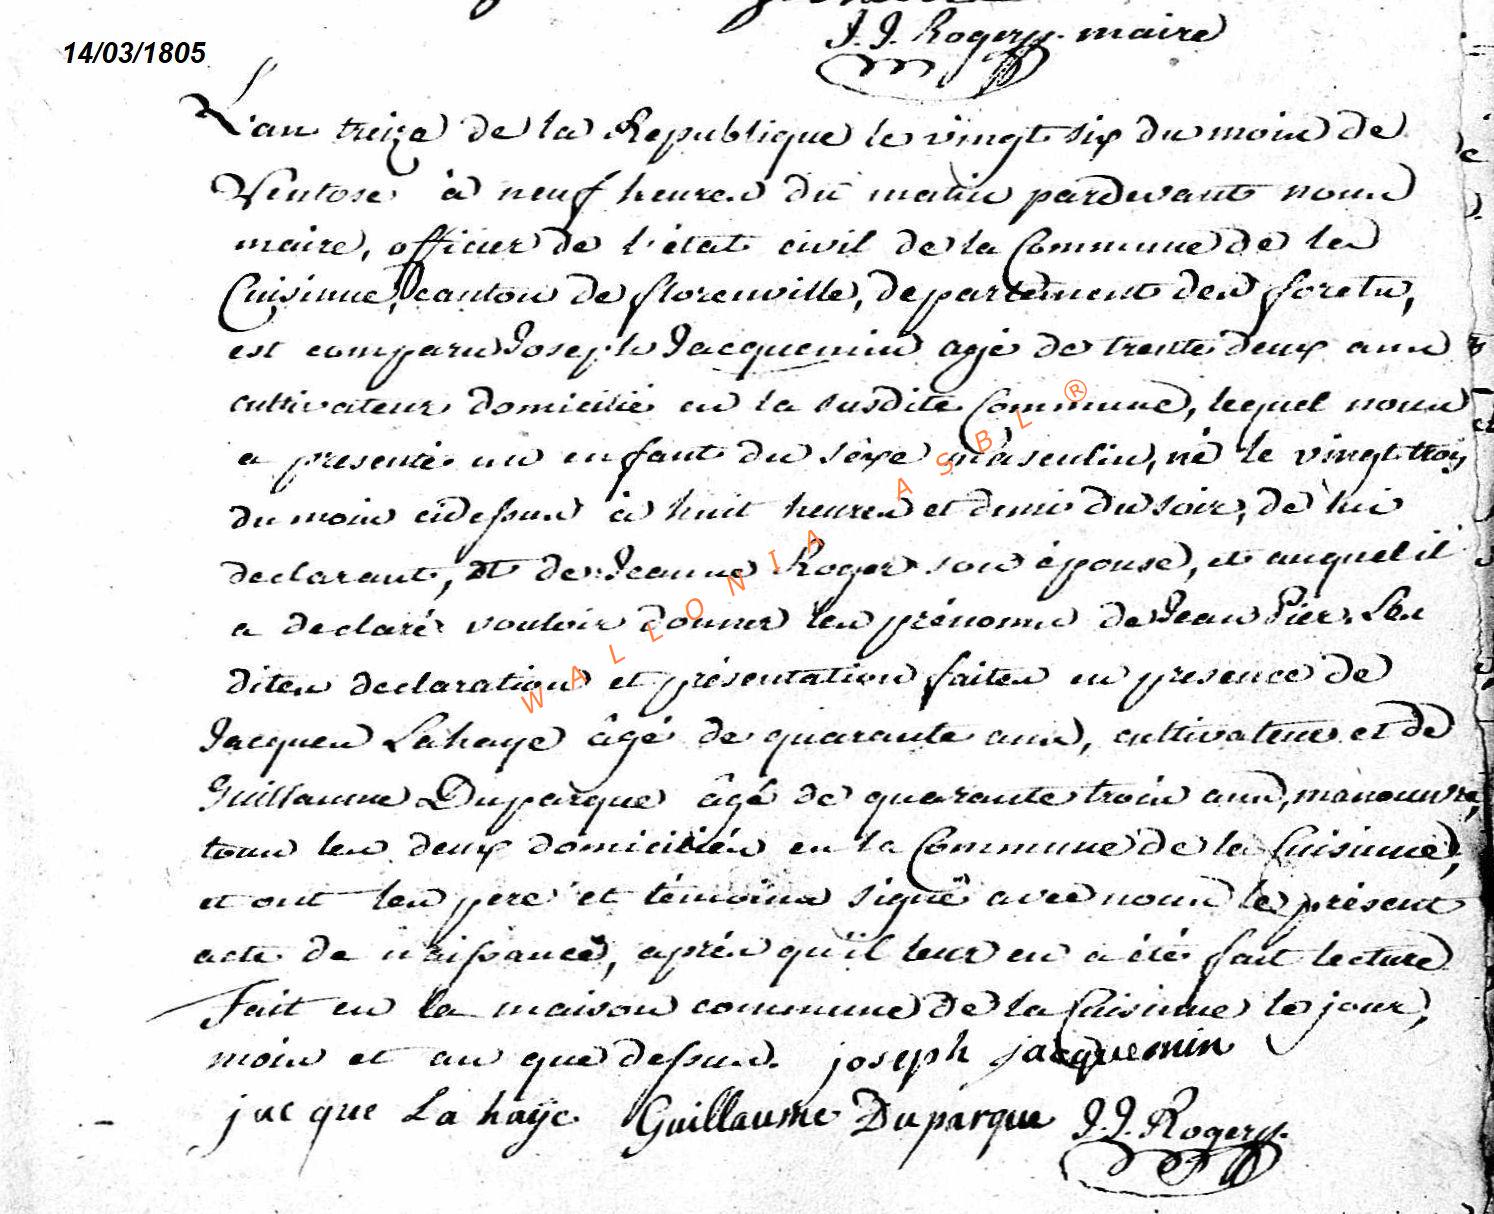 J. J. Rogery. maire
14/03/1805
L'an treize de la Republique le vingt six du mois de
Ventose à neuf heures du matin pardevant nous
maire, officier de l'état civil de la Commune de la
Cuisinne, canton de florenville, departement des forets,
est comparu Joseph Jacquemin agé de trente deux ans
cultivateur domicilié en la susdite Commune, lequel nous
a presenté un enfant du sexe masculin, né le vingt trois
du mois cidessus à huit heures et demi du soir, de lui
declarant, et de Jeanne Roger son épouse, et auquel il
a declaré vouloir donner les prénoms de Jean Pier. Les
dites declaration et présentation faites en presence de
Jacques Lahaye âgé de quarante ans, cultivateur et de
Guillaume Duparque âgé de quarante trois ans, manouvre,
tous les deux domiciliés en la Commune de la Cuisinne,
et ont les pere et témoins signé avec nous le présent
acte de naissance, après qu'il leur en a été fait lecture
Fait en la maison commune de la Cuisinne le jour,
mois et an que dessus. joseph jacquemin
jacque Lahaÿe Guillaume Duparque J. J. Rogery.
WALLONIA ASBL ®